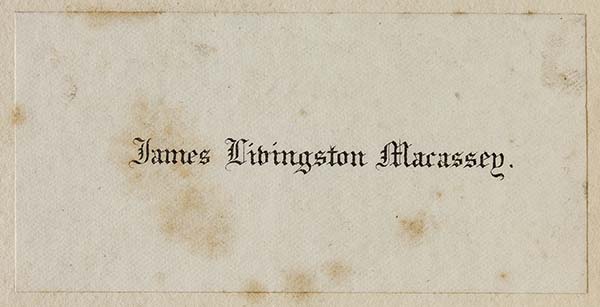 James Livingston Macassey.